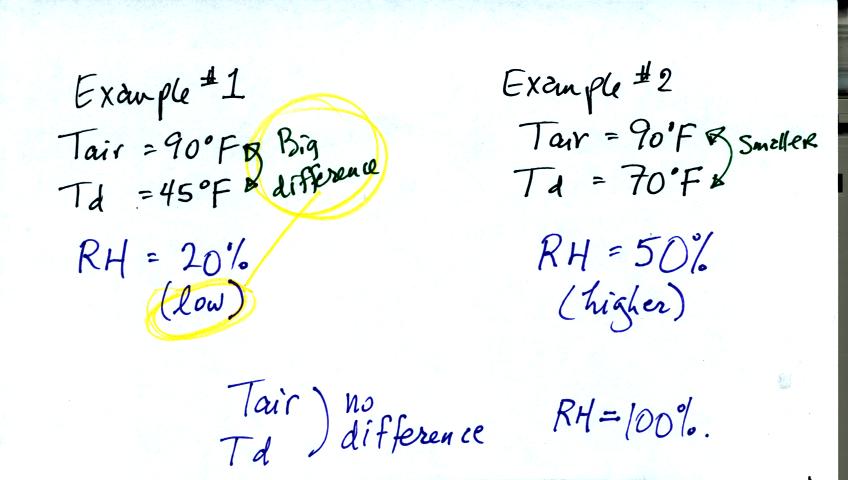 Example #1
Tair = 90°F
Td = 45°F
Big
difference
RH = 20%
(low)
Example #2
Tair = 90°F
Td = 70°F
Smaller
RH = 50%
(higher)
Tair
Td
no
difference
RH = 100%.